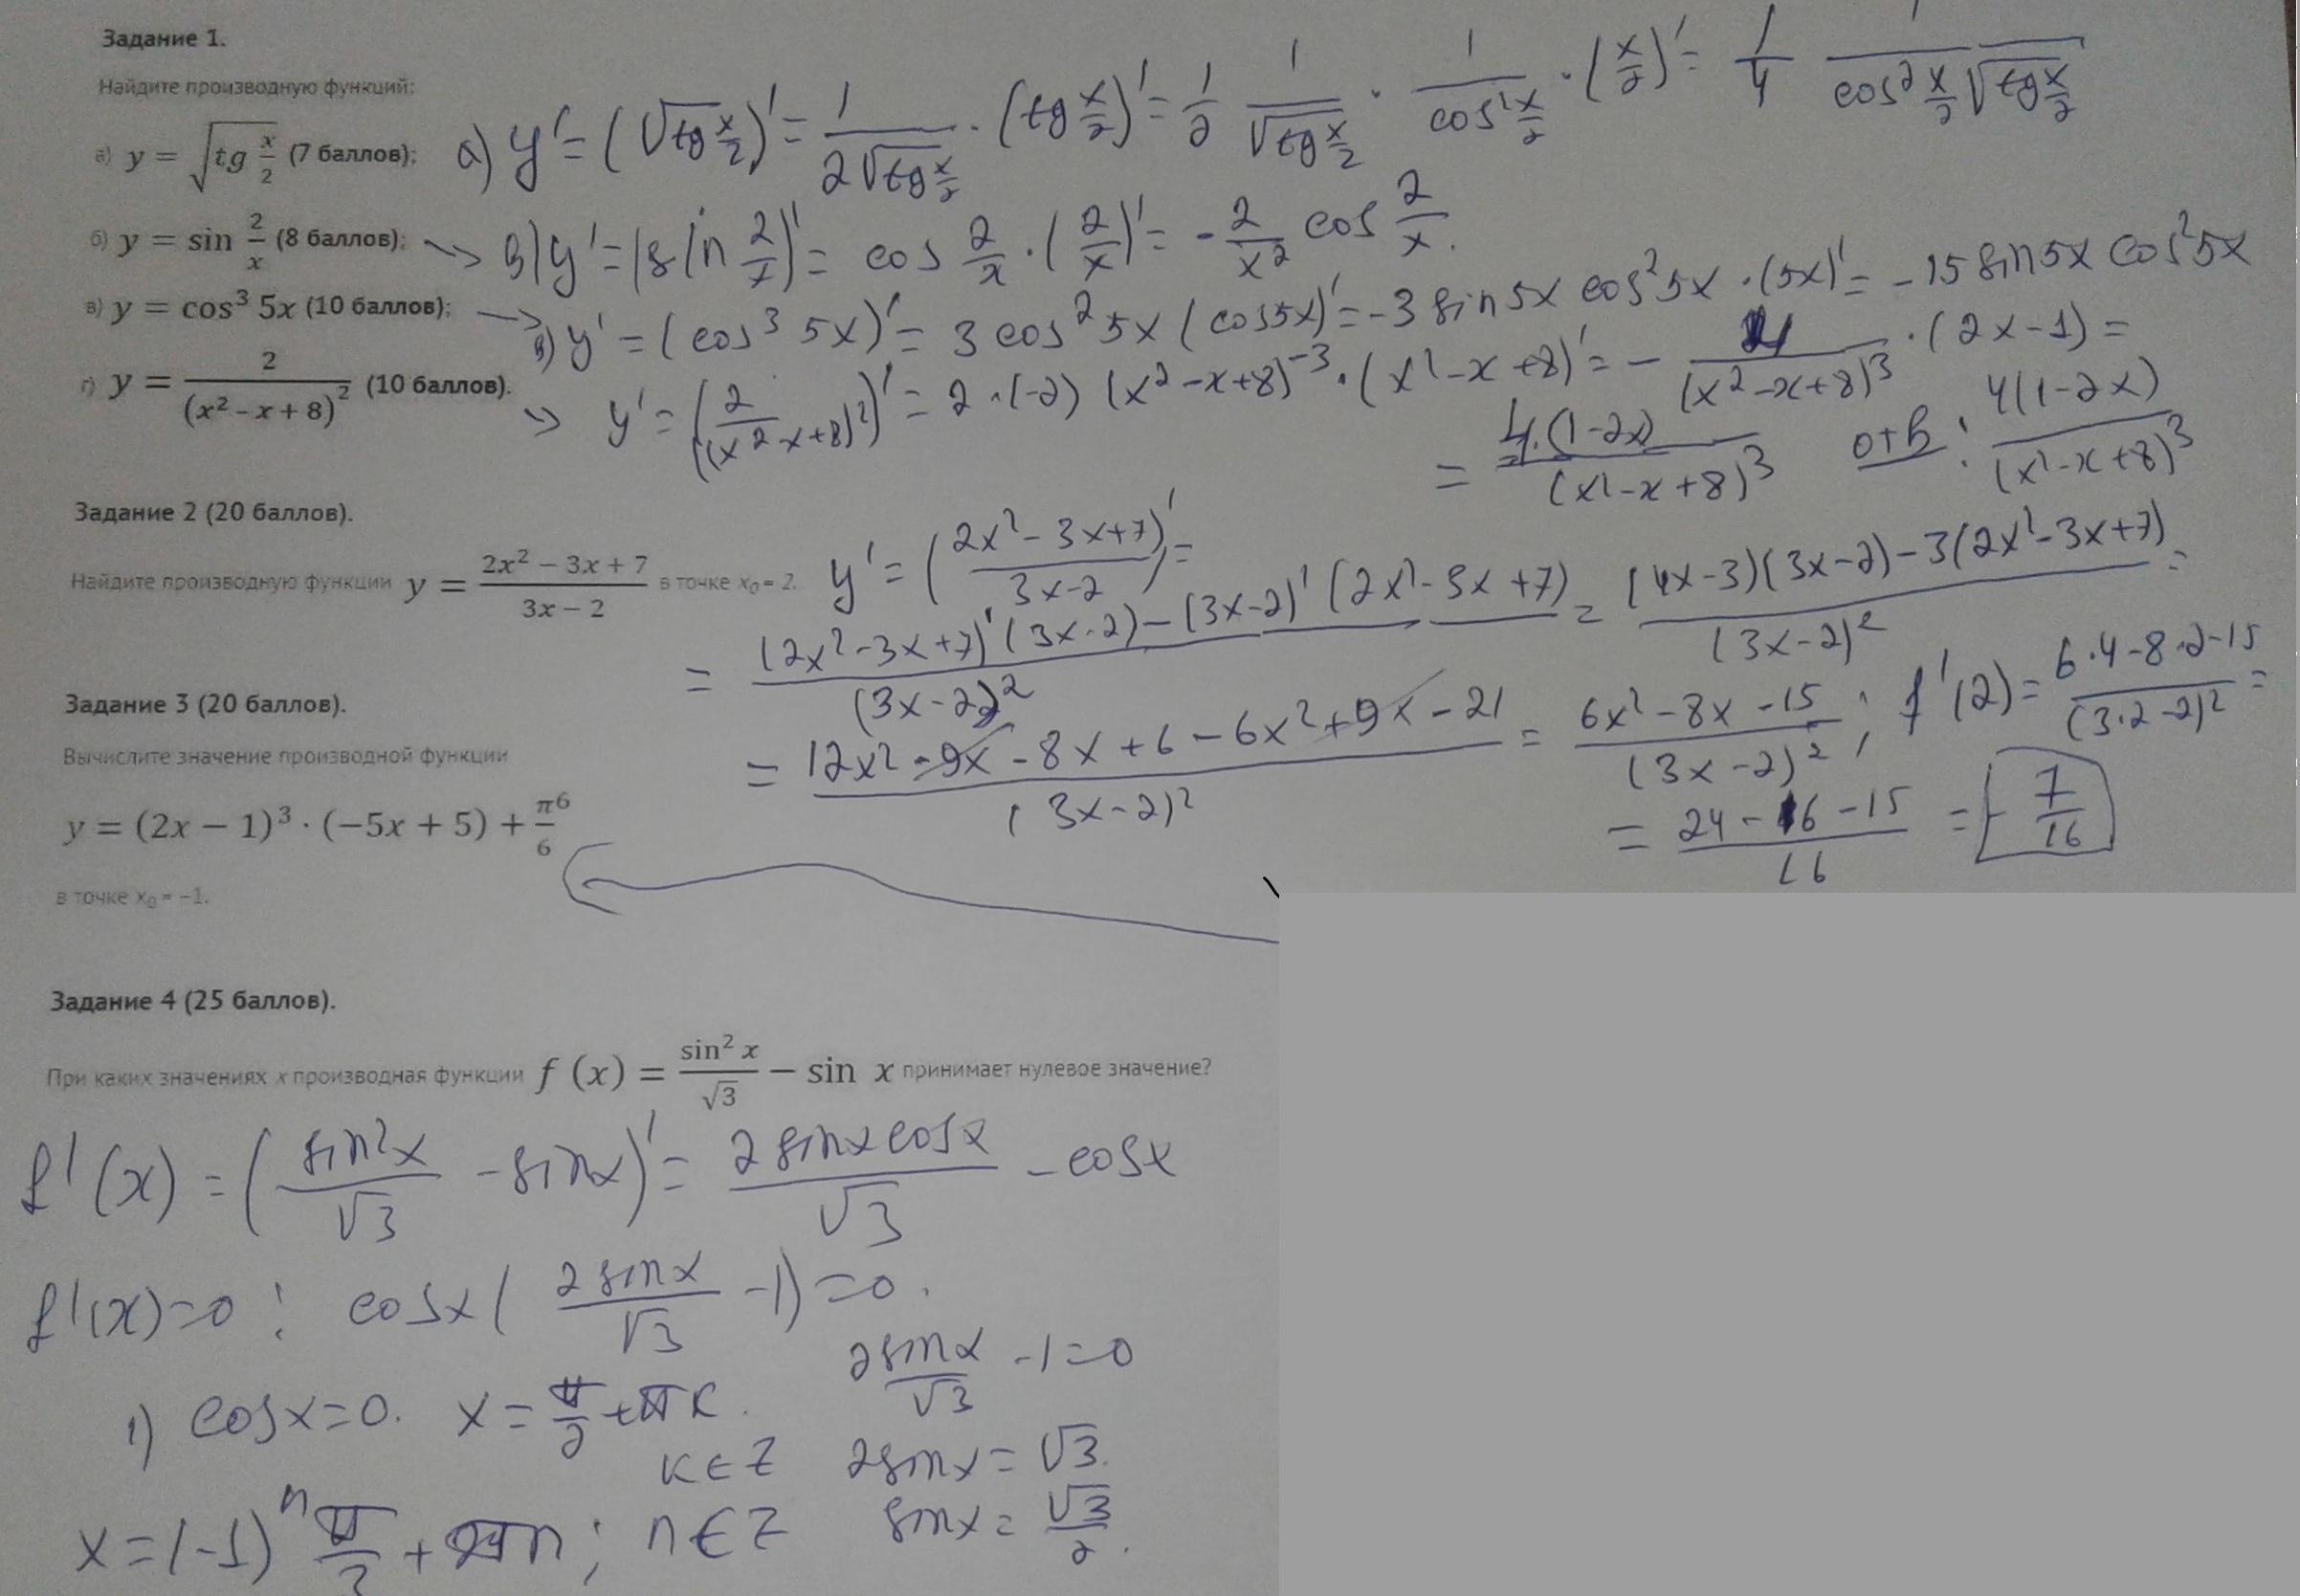 Задание 1.
Найдите производную функций:
а) y = √(tg x/2) (7 баллов);
а) y' = (√(tg x/2))' = 1/(2√(tg x/2)) · (tg x/2)' = 1/2 1/√(tg x/2) · 1/(cos² x/2) · (x/2)' = 1/4 1/(cos² x/2 √(tg x/2))
б) y = sin 2/x (8 баллов);
б) y' = (sin 2/x)' = cos 2/x · (2/x)' = - 2/x² cos 2/x.
в) y = cos³ 5x (10 баллов);
в) y' = (cos³ 5x)' = 3 cos² 5x (cos 5x)' = -3 sin 5x cos² 5x · (5x)' = -15 sin 5x cos² 5x
г) y = 2/(x² − x + 8)² (10 баллов).
y' = (2/(x² - x + 8)²)' = 2 · (-2) (x² - x + 8)⁻³ · (x² - x + 8)' = - 4/(x² - x + 8)³ · (2x - 1) =
= 4·(1-2x)/(x² - x + 8)³ отв: 4(1-2x)/(x² - x + 8)³
Задание 2 (20 баллов).
Найдите производную функции y = (2x² − 3x + 7)/(3x − 2) в точке x₀ = 2.
y' = ((2x² - 3x + 7)/(3x - 2))' =
= ((2x² - 3x + 7)' (3x - 2) - (3x - 2)' (2x² - 3x + 7))/(3x - 2)² = ((4x - 3)(3x - 2) - 3(2x² - 3x + 7))/(3x - 2)² =
= (12x² - 9x - 8x + 6 - 6x² + 9x - 21)/(3x - 2)² = (6x² - 8x - 15)/(3x - 2)²; f'(2) = (6·4 - 8·2 - 15)/(3·2 - 2)² =
= (24 - 16 - 15)/16 = - 7/16
Задание 3 (20 баллов).
Вычислите значение производной функции
y = (2x − 1)³ · (−5x + 5) + π⁶/6
в точке x₀ = −1.
Задание 4 (25 баллов).
При каких значениях x производная функции f (x) = sin² x/√3 − sin x принимает нулевое значение?
f'(x) = (sin² x/√3 - sin x)' = 2 sin x cos x/√3 - cos x
f'(x) = 0 : cos x (2 sin x/√3 - 1) = 0.
2 sin x/√3 - 1 = 0
1) cos x = 0. x = π/2 + πk.
k ∈ Z 2 sin x = √3.
x = (-1)ⁿ π/3 + πn; n ∈ Z sin x = √3/2.